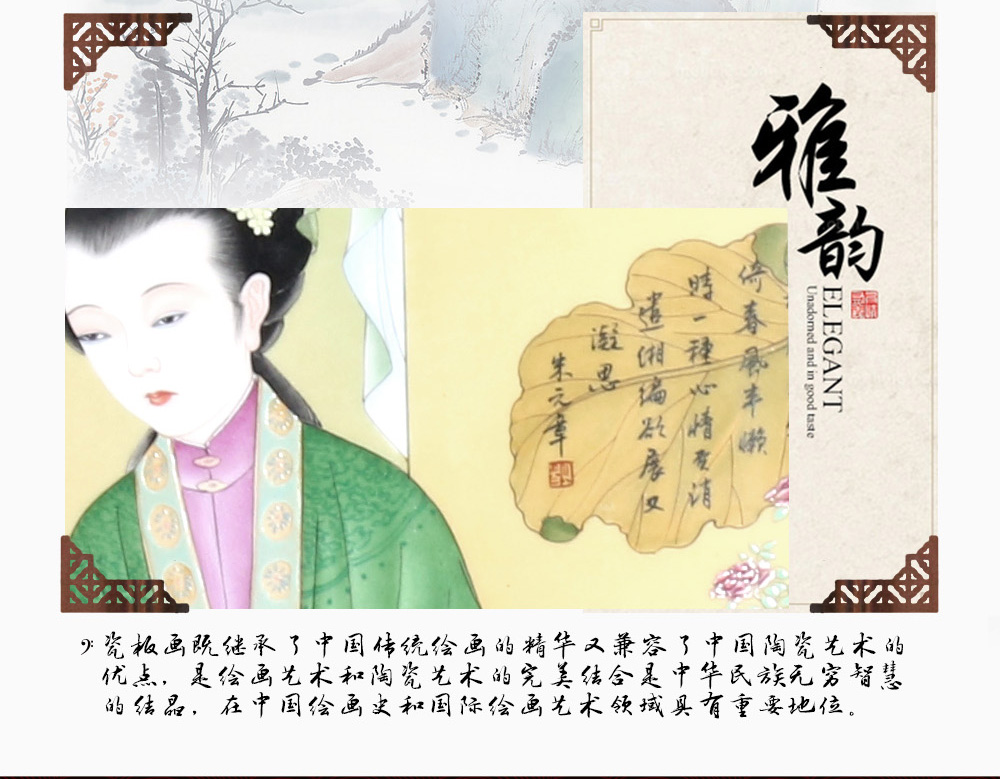 雅韵
ELEGANT
Unadorned and in good taste
倚春风半懒
時一種心情
遣缃编欲展又
凝思
朱元章
瓷板画既继承了中国传统绘画的精华又兼容了中国陶瓷艺术的
优点，是绘画艺术和陶瓷艺术的完美结合是中华民族无穷智慧
的结晶，在中国绘画史和国际绘画艺术领域具有重要地位。